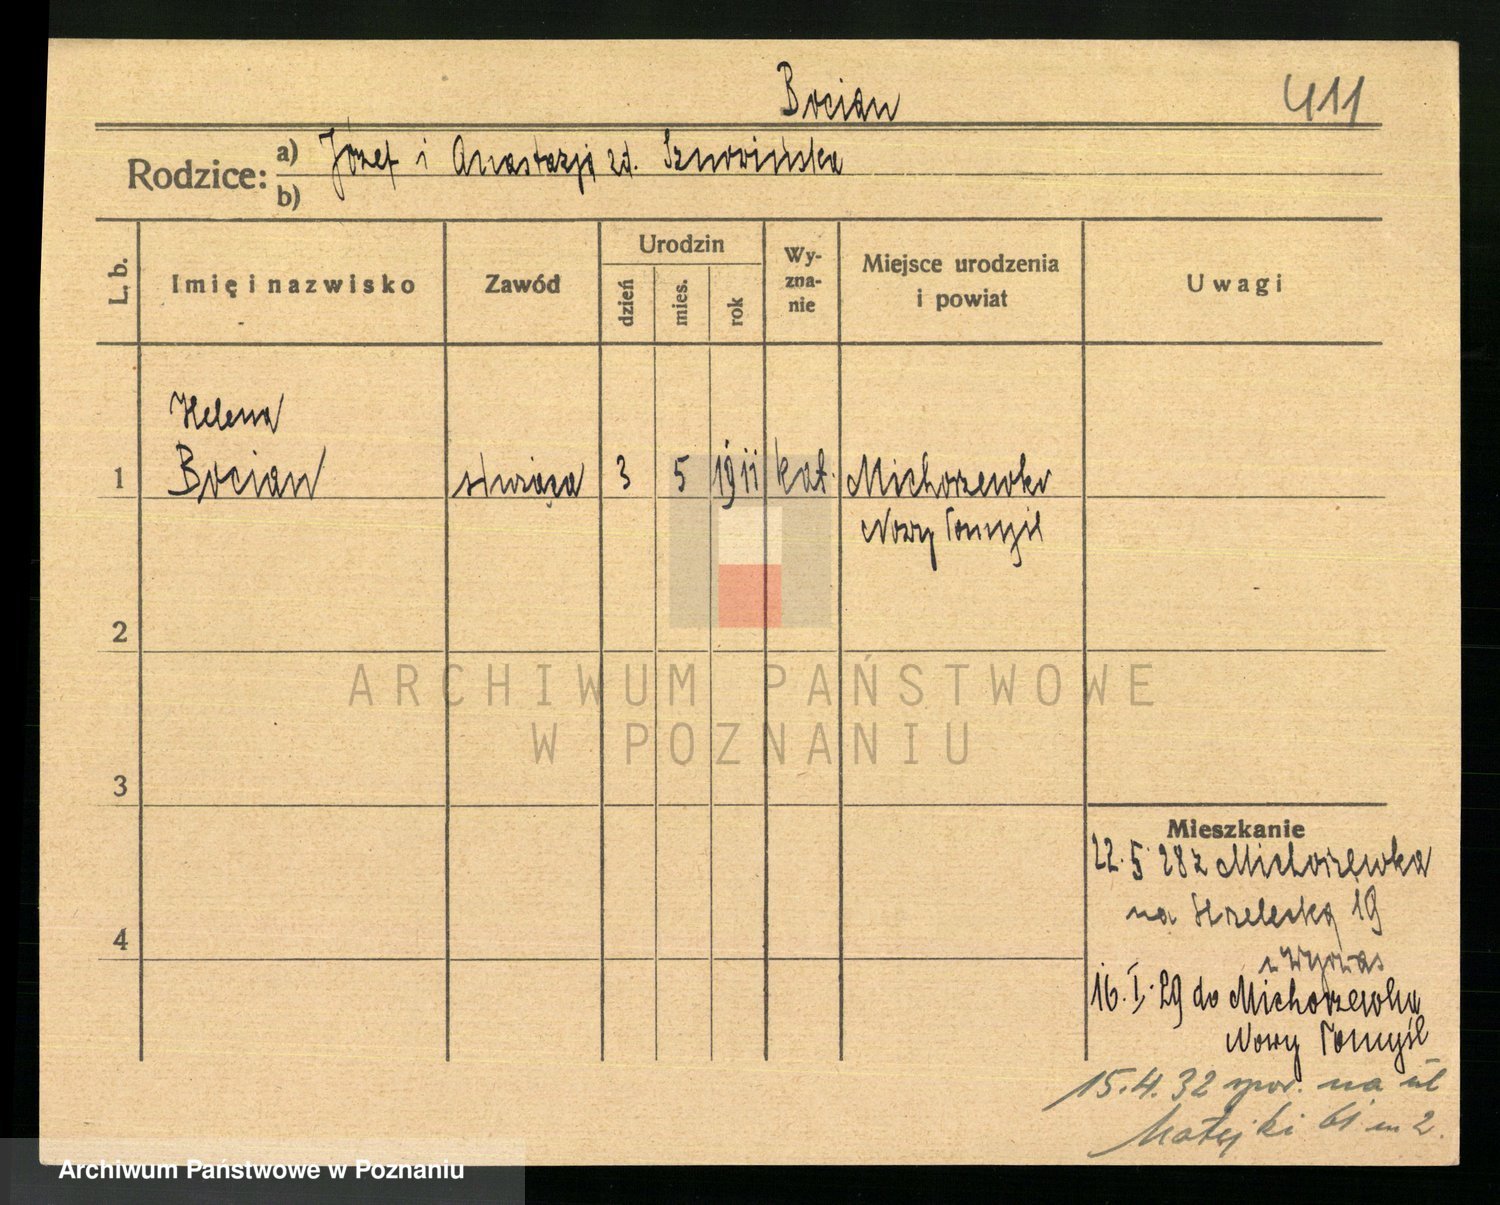 Bocian
411
Rodzice: a) Józef i Anastazja zd.
b)
L. b.
Imię i nazwisko
Zawód
Urodzin
dzień
mies.
rok
Wy-
zna-
nie
Miejsce urodzenia
i powiat
Uwagi
Helena
1 Bocian służąca 3 5 1911 kat. Michorzewko
Nowy Tomyśl
2
ARCHIWUM PAŃSTWOWE
W POZNANIU
3
Mieszkanie
22.5 28 z Michorzewka
na Strzelecka 19
4
16.I.29 do Michorzewka
Nowy Tomyśl
15.4.32 na ul
Matejki 61 m 2.
Archiwum Państwowe w Poznaniu